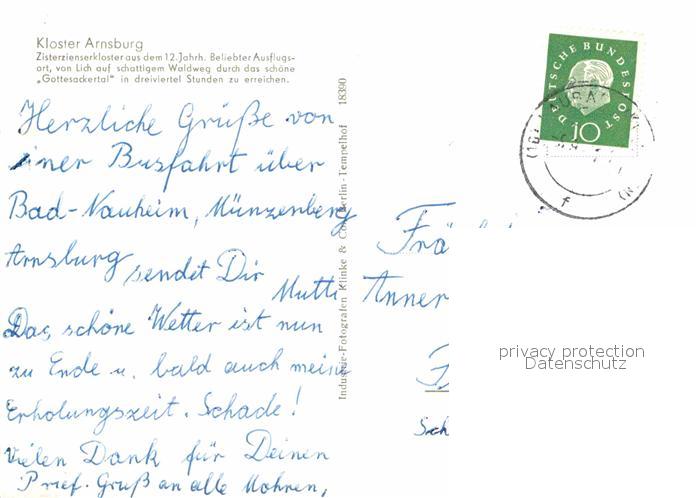 Kloster Arnsburg
Zisterzienserkloster aus dem 12. Jahrh. Beliebter Ausflugs-
ort, von Lich auf schattigem Waldweg durch das schöne
„Gottesackertal" in dreiviertel Stunden zu erreichen.
Herzliche Grüße von
einer Busfahrt über
Bad-Nauheim, Münzenberg
Arnsburg sendet Dir
Mutti
Das schöne Wetter ist nun
zu Ende u. bald auch meine
Erholungszeit. Schade!
Vielen Dank für Deinen
Brief. Gruß an alle Mohren,
Industrie-Fotografen Klinke & Co. Berlin-Tempelhof 18390
DEUTSCHE BUNDESPOST
10
(16)
f
Frä
Anner
Sch
privacy protection
Datenschutz